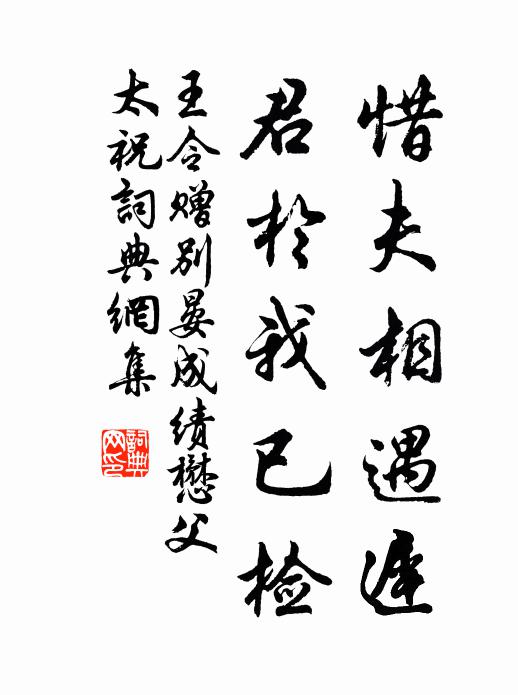 惜夫相遇遲
君於我已检
王令赠别晏成绩懋父
太祝詞典網集
詞典网印